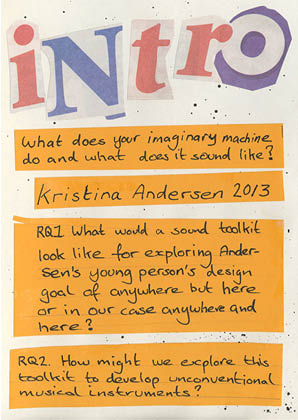 iNtro
What does your imaginary machine
do and what does it sound like?
Kristina Andersen 2013
RQ1 What would a sound toolkit
look like for exploring Ander-
sen's young person's design
goal of anywhere but here
or in our case anywhere and
here?
RQ2. How might we explore this
toolkit to develop unconventional
musical instruments?